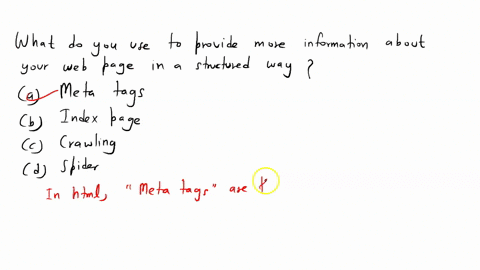 What do you use to provide more information about
your web page in a structured way ?
(a) Meta tags
(b) Index page
(c) Crawling
(d) Spider
In html, "Meta tags" are